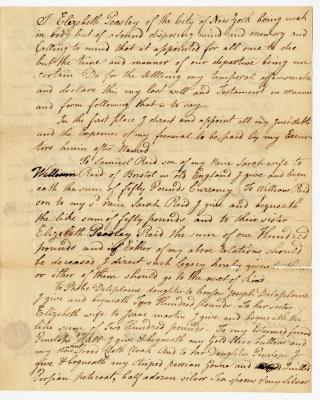 I Elizabeth Peasley of the City of New York being weak
in body but of a Sound disposing mind and memory and
Calling to mind that it appointed for all once to die
but the time and manner of our departure being un
certain Do for the settling my temporal affairs make
and declare this my last will and Testament in manner
and form following that is to say
In the first place I direct and appoint all my just debts
and the Expences of my funeral to be paid by my Execu
tors herein after Named
To Samuel Reid son of my Neice Sarah wife to
William Reid of Bristol in Old England I give and beque
eath the sum of fifty Pounds Currency To William Reid
son to my Neice Sarah Reid I give and bequeath
the like sum of fifty pounds and to their sister
Elizabeth Peasley Reid the sum of one Hundred
pounds and if Either of my above relations should
be deceased I direct such legacy hereby given
or either of them should go to the next of Kin
To Phebe Delaplaine daughter to Cousin Joseph Delaplaine
I give and bequeath Two Hundred pounds To her sister
Elizabeth wife to Isaac Martin I give and bequeath the
like sum of Two Hundred pounds To my Esteemed friend
Penelope Hull I give & bequeath my Gold Sleve buttons and
my broad Cloth Cloak And to her Daughter Penelope I
give & bequeath my striped persian Gown and quilted
Persian peticoat, half a dozen silver Tea spoons & my Silver